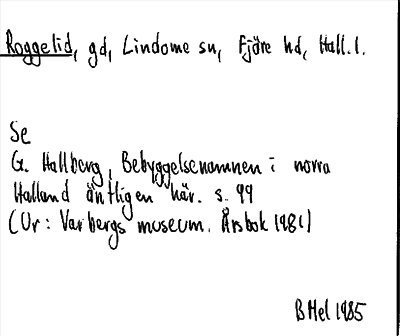 Roggelid, gd, Lindome sn, Fjäre hd, Hall. l.
Se
G. Hallberg, Bebyggelsenamnen i norra
Halland äntligen här. s. 99
(Ur: Varbergs museum. Årsbok 1981)
B Mel 1985